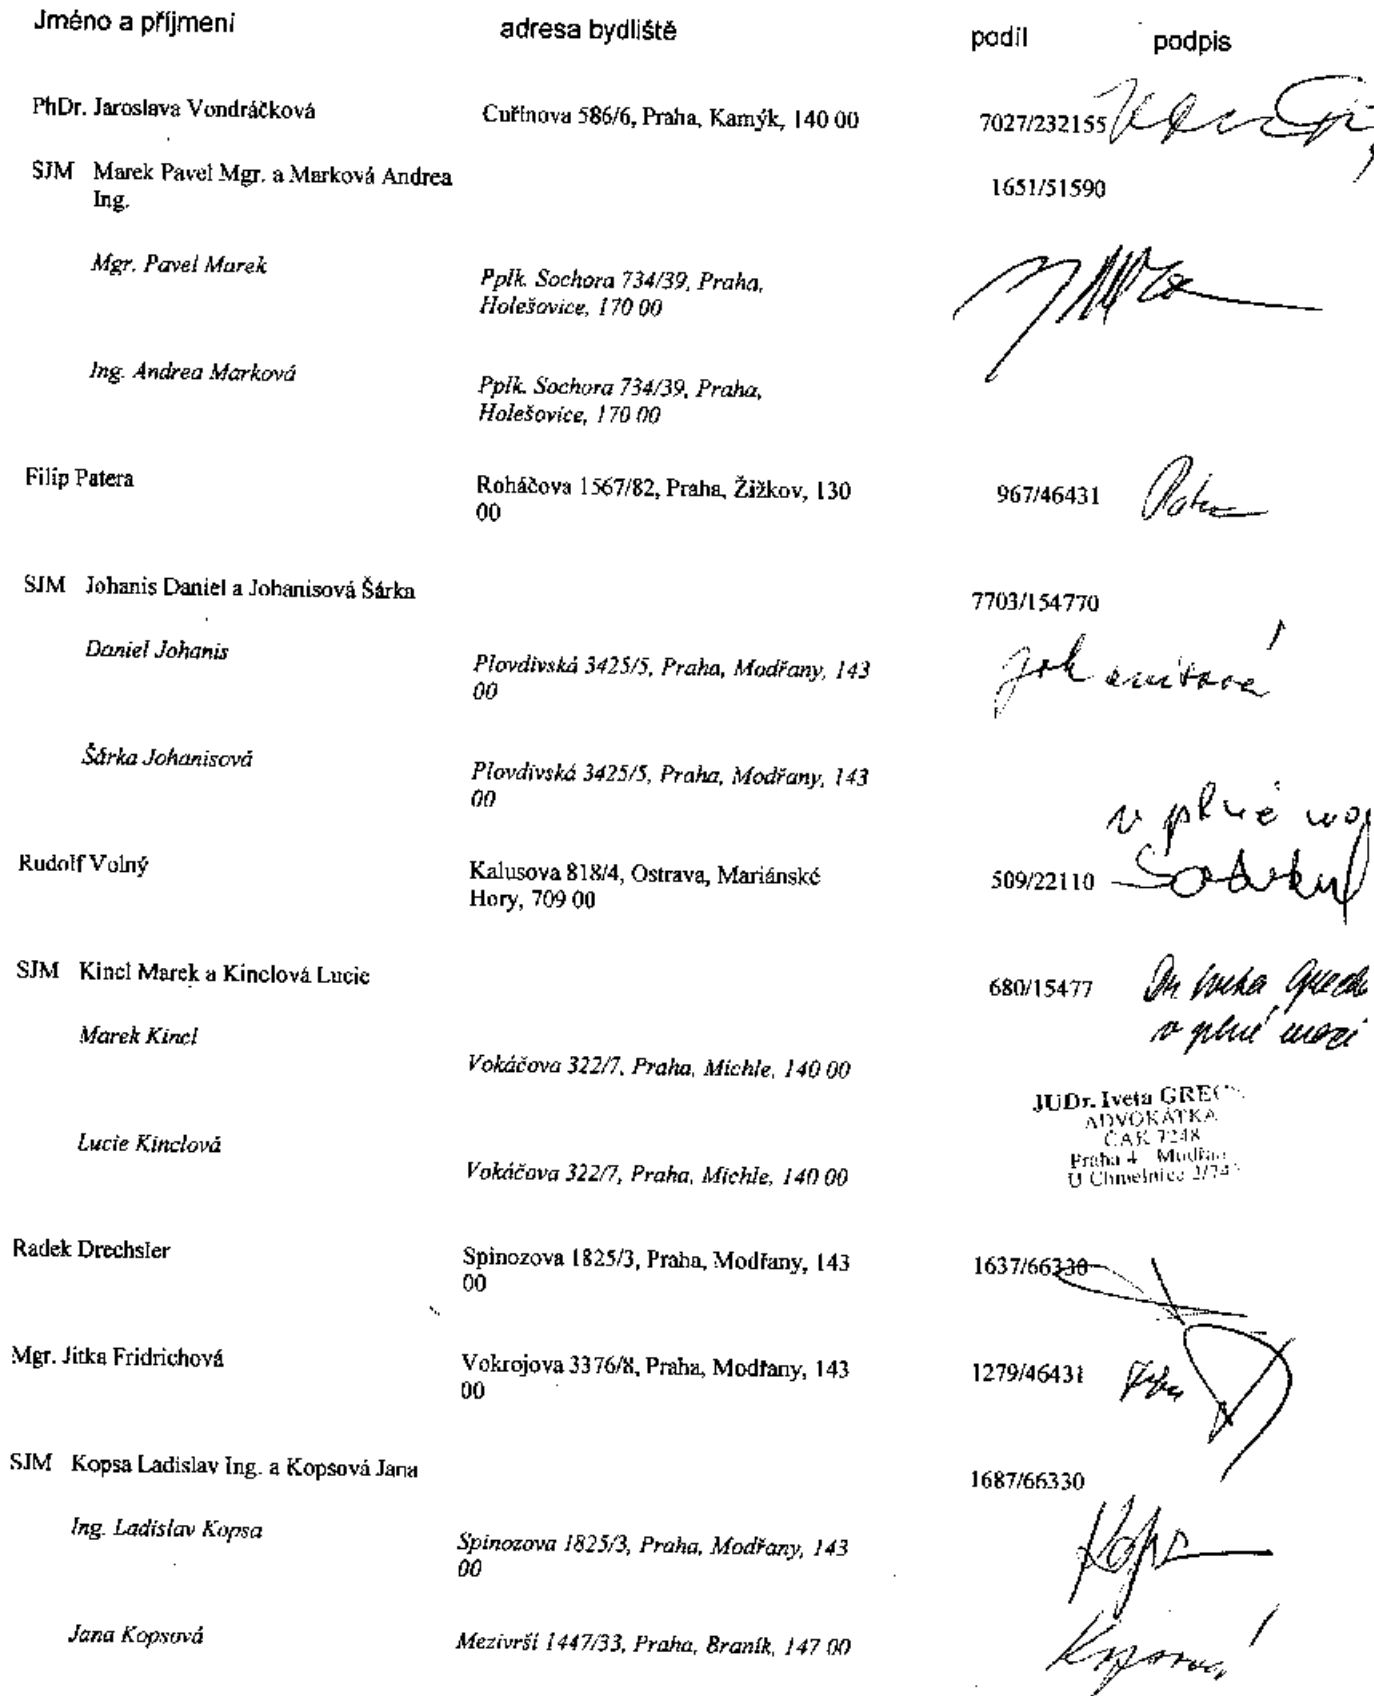 Jméno a příjmení adresa bydliště podíl podpis
PhDr. Jaroslava Vondráčková Cuřínova 586/6, Praha, Kamýk, 140 00 7027/232155
SJM Marek Pavel Mgr. a Marková Andrea 1651/51590
Ing.
Mgr. Pavel Marek Pplk. Sochora 734/39, Praha,
Holešovice, 170 00
Ing. Andrea Marková Pplk. Sochora 734/39, Praha,
Holešovice, 170 00
Filip Patera Roháčova 1567/82, Praha, Žižkov, 130 967/46431
00
SJM Johanis Daniel a Johanisová Šárka 7703/154770
Daniel Johanis Plovdivská 3425/5, Praha, Modřany, 143 Johanisová
00
Šárka Johanisová Plovdivská 3425/5, Praha, Modřany, 143
00
v plné moci
Rudolf Volný Kalusova 818/4, Ostrava, Mariánské 509/22110
Hory, 709 00
SJM Kincl Marek a Kinclová Lucie 680/15477
v plné moci
Marek Kincl
Vokáčova 322/7, Praha, Michle, 140 00
JUDr. Iveta GREC
ADVOKÁTKA
ČAK 7248
Lucie Kinclová Praha 4 Modřan
Vokáčova 322/7, Praha, Michle, 140 00 U Chmelnice 2/74
Radek Drechsler Spinozova 1825/3, Praha, Modřany, 143 1637/66330
00
Mgr. Jitka Fridrichová Vokrojova 3376/8, Praha, Modřany, 143 1279/46431
00
SJM Kopsa Ladislav Ing. a Kopsová Jana 1687/66330
Ing. Ladislav Kopsa Spinozova 1825/3, Praha, Modřany, 143 Kopsa
00
Jana Kopsová Mezivrší 1447/33, Praha, Braník, 147 00 Kopsová